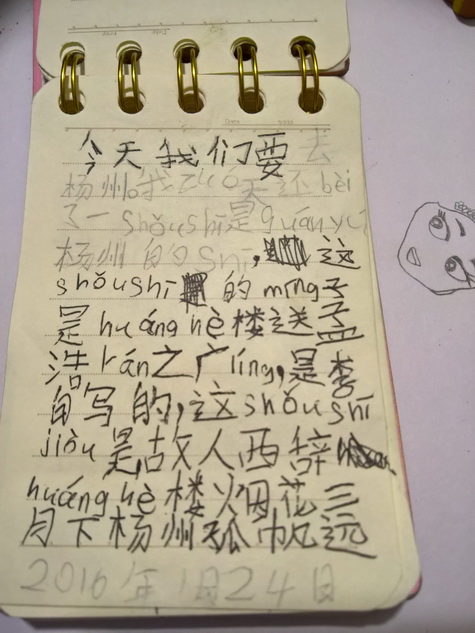 今天我们要去
杨州。我zuó天还bèi
了一shǒushī是guānyú
杨州的shī,这
shǒushī的míng子
是huánghè楼送孟
浩rán之广líng,是李
自写的,这shǒushī
jiòu是故人西辞
huánghè楼烟花三
月下杨州孤帆远
2016年1月24日